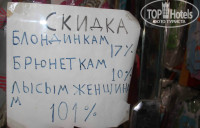 СКИДКА
БЛОНДИНКАМ 17%
БРЮНЕТКАМ 10%
ЛЫСЫМ ЖЕНЩИНАМ
101%
TopHotels